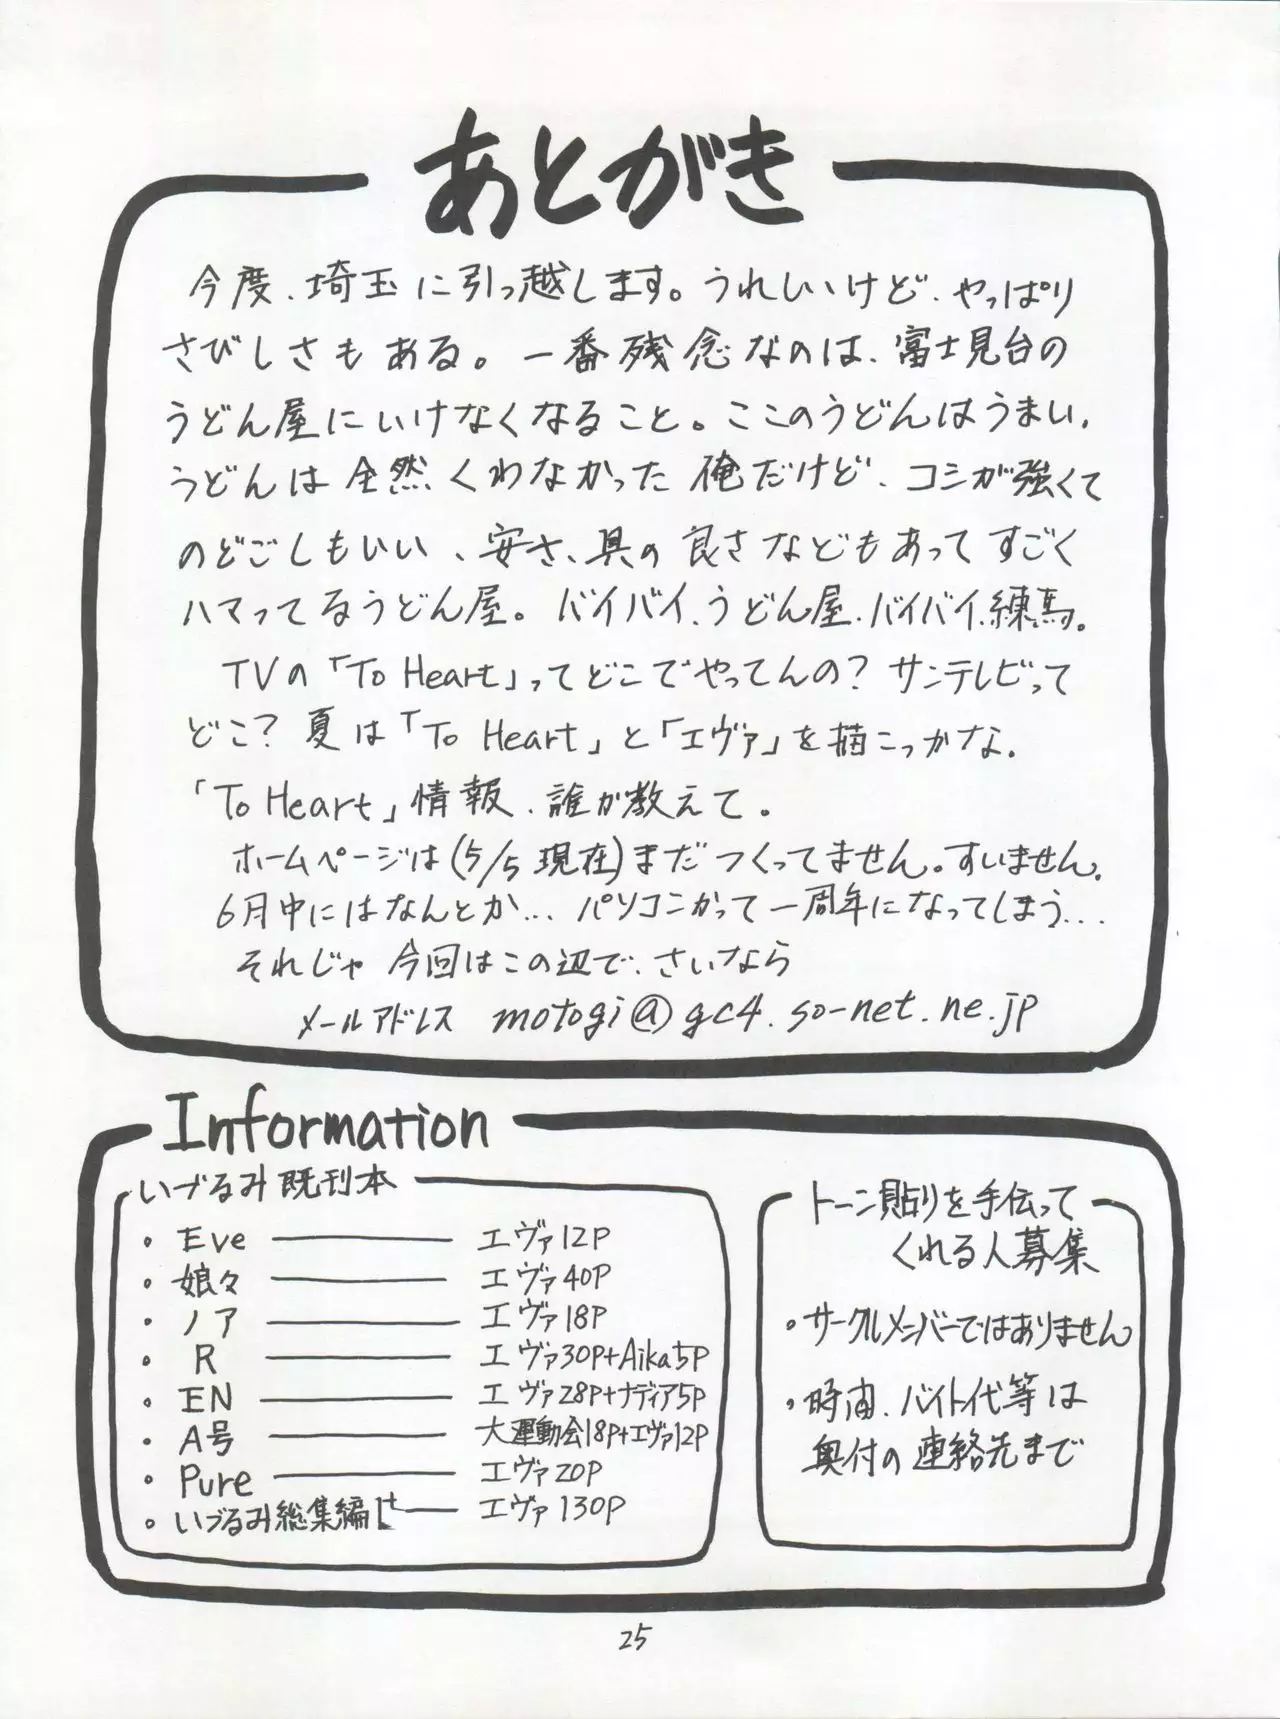 あとがき
今度、埼玉に引っ越します。うれしいけど、やっぱり
さびしさもある。一番残念なのは、富士見台の
うどん屋にいけなくなること。ここのうどんはうまい。
うどんは全然くわなかった俺だけど、コシが強くて
のどごしもいい、安さ、具の良さなどもあってすごく
ハマってるうどん屋。バイバイ、うどん屋、バイバイ、練馬。
TVの「To Heart」ってどこでやってんの?サンテレビって
どこ?夏は「To Heart」と「エヴァ」を描こっかな。
「To Heart」情報、誰か教えて。
ホームページは(5/5現在)まだつくってません。すいません。
6月中にはなんとか… パソコンかって一周年になってしまう…
それじゃ今回はこの辺で、さいなら
メールアドレス motogi@gc4.so-net.ne.jp
Information
いづるみ既刊本
・Eve エヴァ12P
・娘々 エヴァ40P
・ノア エヴァ18P
・R エヴァ30P+Aika5P
・EN エヴァ28P+ナディア5P
・A号 大運動会18P+エヴァ12P
・Pure エヴァ20P
・いづるみ総集編 エヴァ130P
トーン貼りを手伝って
くれる人募集
・サークルメンバーではありません
・時間、バイト代等は
奥付の連絡先まで
25